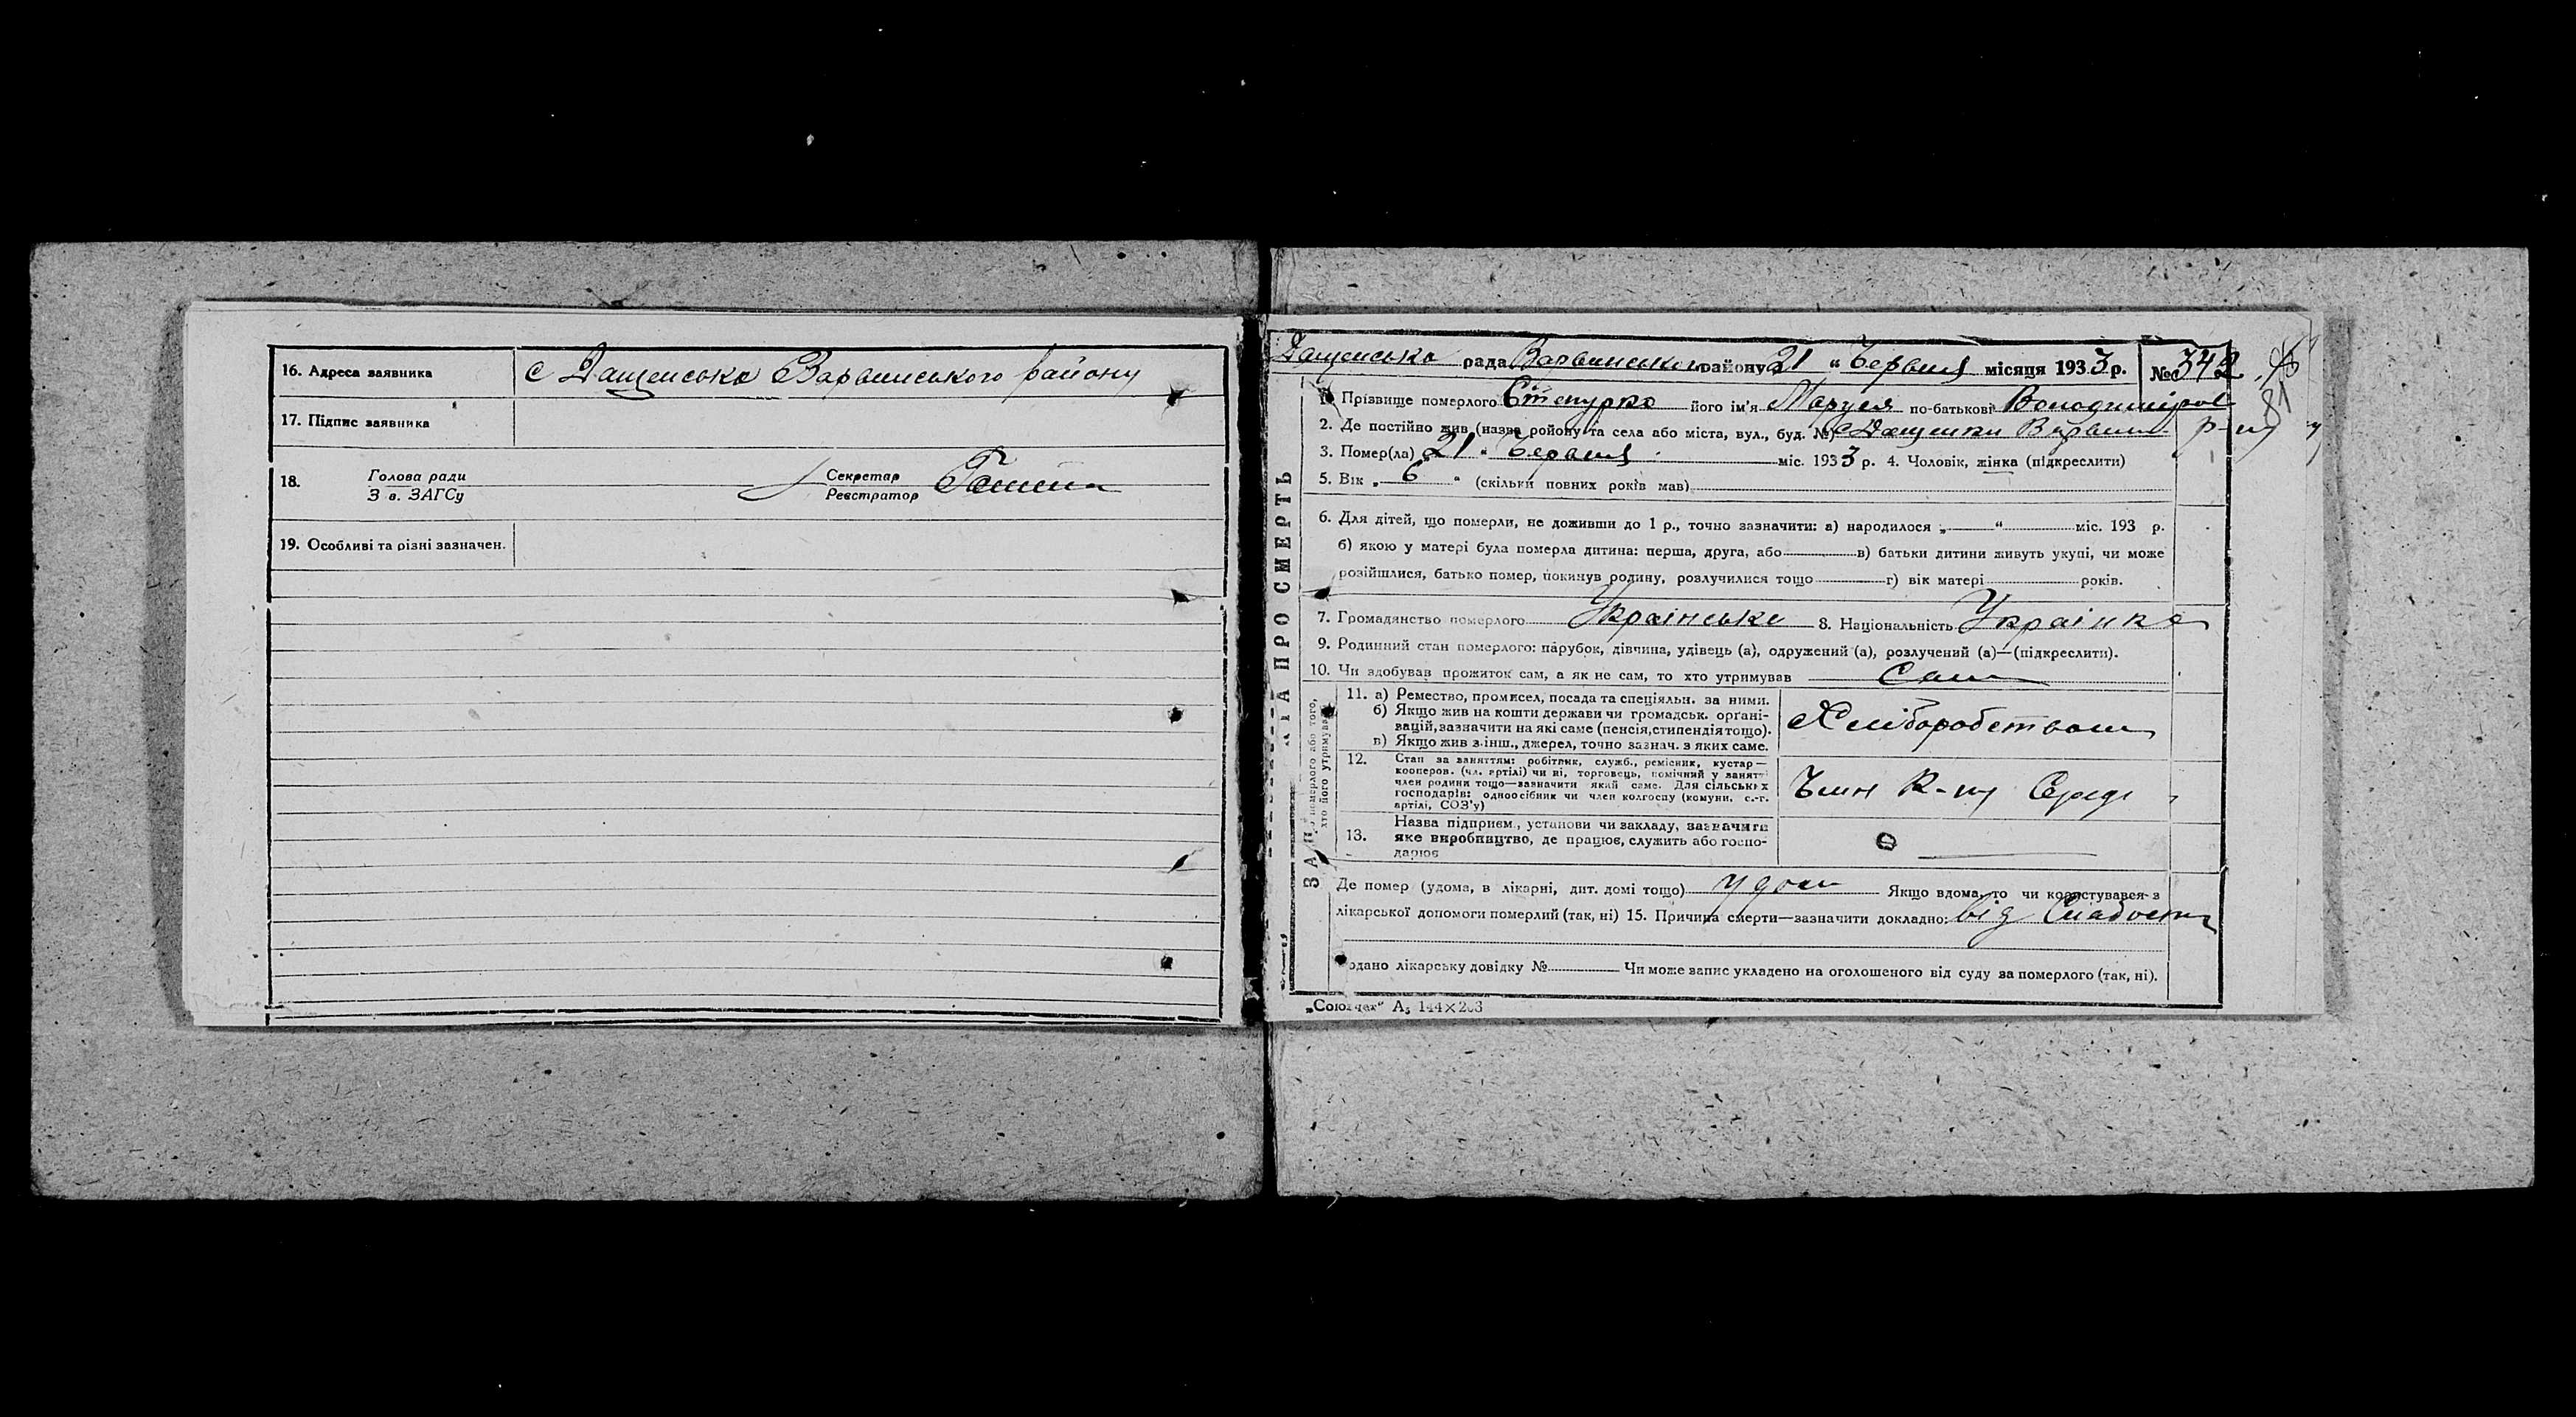 16. Адреса заявника с Дащенська Варвинського району
17. Підпис заявника
18. Голова ради Секретар
З в. ЗАГСу Реєстратор
19. Особливі та різні зазначен.
Дащенська рада Варвинського району 21 “ Червня місяця 1933 р. № 342
81
ЗАПИС ПРО СМЕРТЬ
1. Прізвище померлого Степурко його ім'я Маруся по-батькові Володимиров
2. Де постійно жив (назва району та села або міста, вул., буд. №) с Дащенки Варвин р-ну
3. Помер(ла) „21“ Червня міс. 1933 р. 4. Чоловік, жінка (підкреслити)
5. Вік „ 6 “ (скільки повних років мав)
6. Для дітей, що померли, не доживши до 1 р., точно зазначити: а) народилося „ “ міс. 193 р.
б) якою у матері була померла дитина: перша, друга, або в) батьки дитини живуть укупі, чи може
розійшлися, батько помер, покинув родину, розлучилися тощо г) вік матері років.
7. Громадянство померлого Українське 8. Національність Українка
9. Родинний стан померлого: парубок, дівчина, удівець (а), одружений (а), розлучений (а)—(підкреслити).
10. Чи здобував прожиток сам, а як не сам, то хто утримував Сам
про померлого або того,
хто його утримував
11. а) Ремество, промисел, посада та спеціяльн. за ними.
б) Якщо жив на кошти держави чи громадськ. органі-
зацій, зазначити на які саме (пенсія, стипендія тощо).
в) Якщо жив з інш., джерел, точно зазнач. з яких саме.
Хліборобством
12. Стан за заняттям: робітник, служб., ремісник, кустар—
кооперов. (чл. артілі) чи ні, торговець, помічний у занятті
член родини тощо—зазначити який саме. Для сільських
господарів: одноосібник чи член колгоспу (комуни, с.-г.
артілі, СОЗ'у)
Член К-пу
13. Назва підприєм., установи чи закладу, зазначити
яке виробництво, де працює, служить або госпо-
дарює
Де помер (удома, в лікарні, дит. домі тощо) у дом Якщо вдома, то чи користувався з
лікарської допомоги померлий (так, ні) 15. Причина смерти—зазначити докладно: від Слабости
одано лікарську довідку № Чи може запис укладено на оголошеного від суду за померлого (так, ні).
„Союзчет“ А₅ 144×203